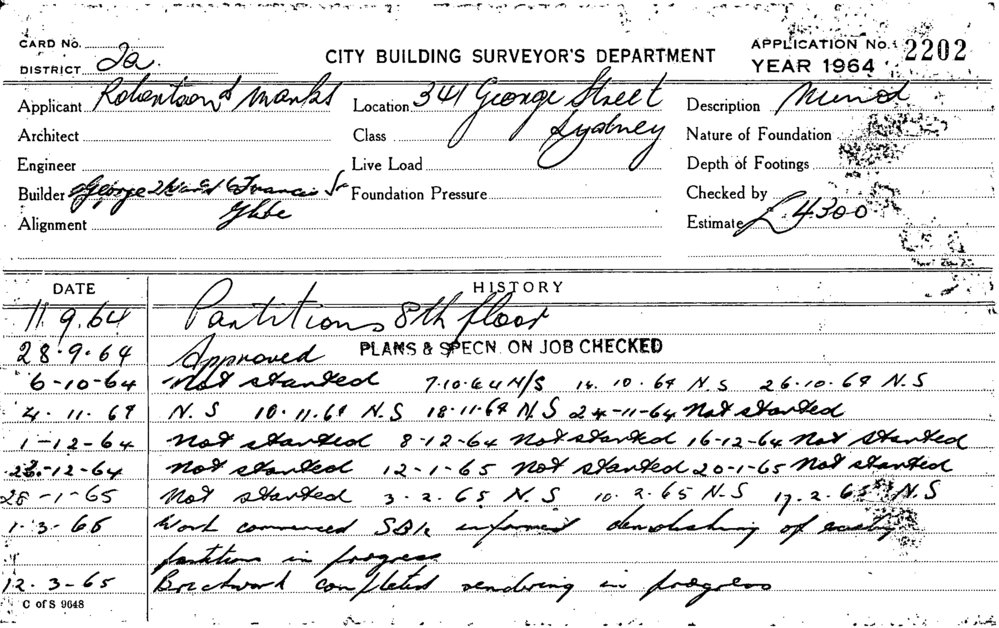 CARD No.
DISTRICT 2a.
CITY BUILDING SURVEYOR'S DEPARTMENT
APPLICATION No. 2202
YEAR 1964
Applicant Robertson & Marks
Location 341 George Street
Sydney
Description
Architect
Class
Nature of Foundation
Engineer
Live Load
Depth of Footings
Builder George Ward 6 Francis St
Glebe
Foundation Pressure
Checked by
Alignment
Estimate £4300
DATE HISTORY
11.9.64 Partitions 8th floor
28.9.64 Approved PLANS & SPECN. ON JOB CHECKED
6-10-64 Not started 7.10.64 N/S 14.10.64 N.S 26.10.64 N.S
4.11.64 N.S 10.11.64 N.S 18.11.64 N.S 24-11-64 Not started
1-12-64 Not started 8-12-64 Not started 16-12-64 Not started
23-12-64 Not started 12-1-65 Not started 20-1-65 Not started
28-1-65 Not started 3.2.65 N.S 10.2.65 N.S 17.2.65 N.S
1.3.65 Work commenced informed demolishing of
partition in progress
12.3-65 Brickwork completed rendering in progress
C of S 9648